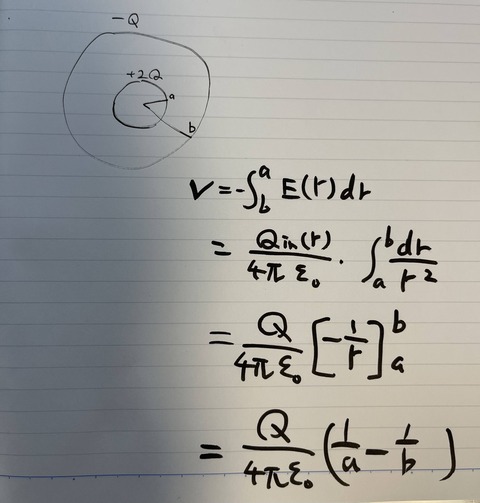 -Q
+2Q
a
b
V = -∫_b^a E(r) dr
= Qin(r)/4πε₀ · ∫_a^b dr/r²
= Q/4πε₀ [-1/r]_a^b
= Q/4πε₀ (1/a - 1/b)